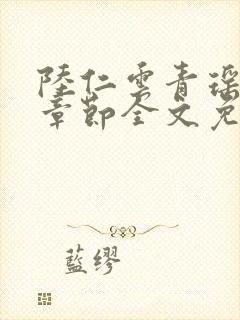 陸仁雲青瑶
章節全文免
藍繆